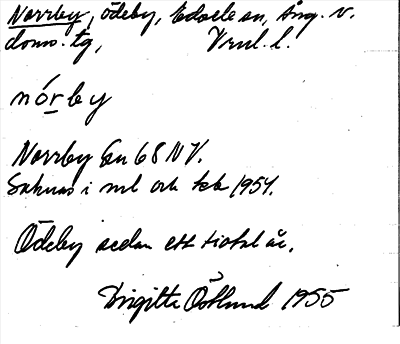 Norrby, ödeby, Edsele sn, Ång. v.
doms. tg, Vrml. l.
nórby
Norrby Gen 68 NV.
Saknas i ml och tek 1954.
Ödeby sedan ett tiotal år.
Birgitta Östlund 1955